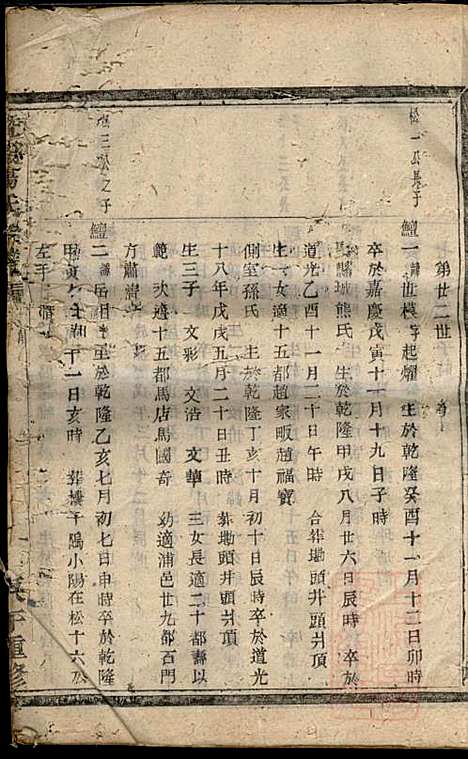 第廿二世
松一公長子
鱣一諱世模字起燿 生於乾隆癸酉十一月十二日卯時
卒於嘉慶戊寅十一月十九日子時
城熊氏 生於乾隆甲戌八月廿六日辰時 卒於
道光乙酉十一月二十日午時 合葬坳頭井頂
生一女適十五都趙家畈趙福寶
側室孫氏 生於乾隆丁亥十月初十日辰時卒於道光
十八年戊戌五月二十日丑時 葬坳頭井頂
生三子 文彩 文浩 文華 三女長適二十都壽以
範 次適十五都馬店馬國奇 幼適浦邑廿九都石門
方肅
松三公之子
鱣二諱岳 生於乾隆乙亥七月初七日申時卒於乾隆
十一日亥時 葬 塢小陽在松十六公
左手
重修